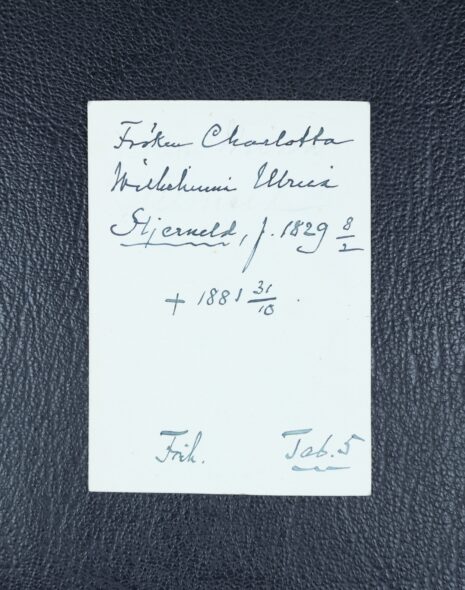 Fröken Charlotta
Wilhelmina Ulrica
Stjerneld, f. 1829 8/2
+ 1881 31/10.
Frih. Tab. 5